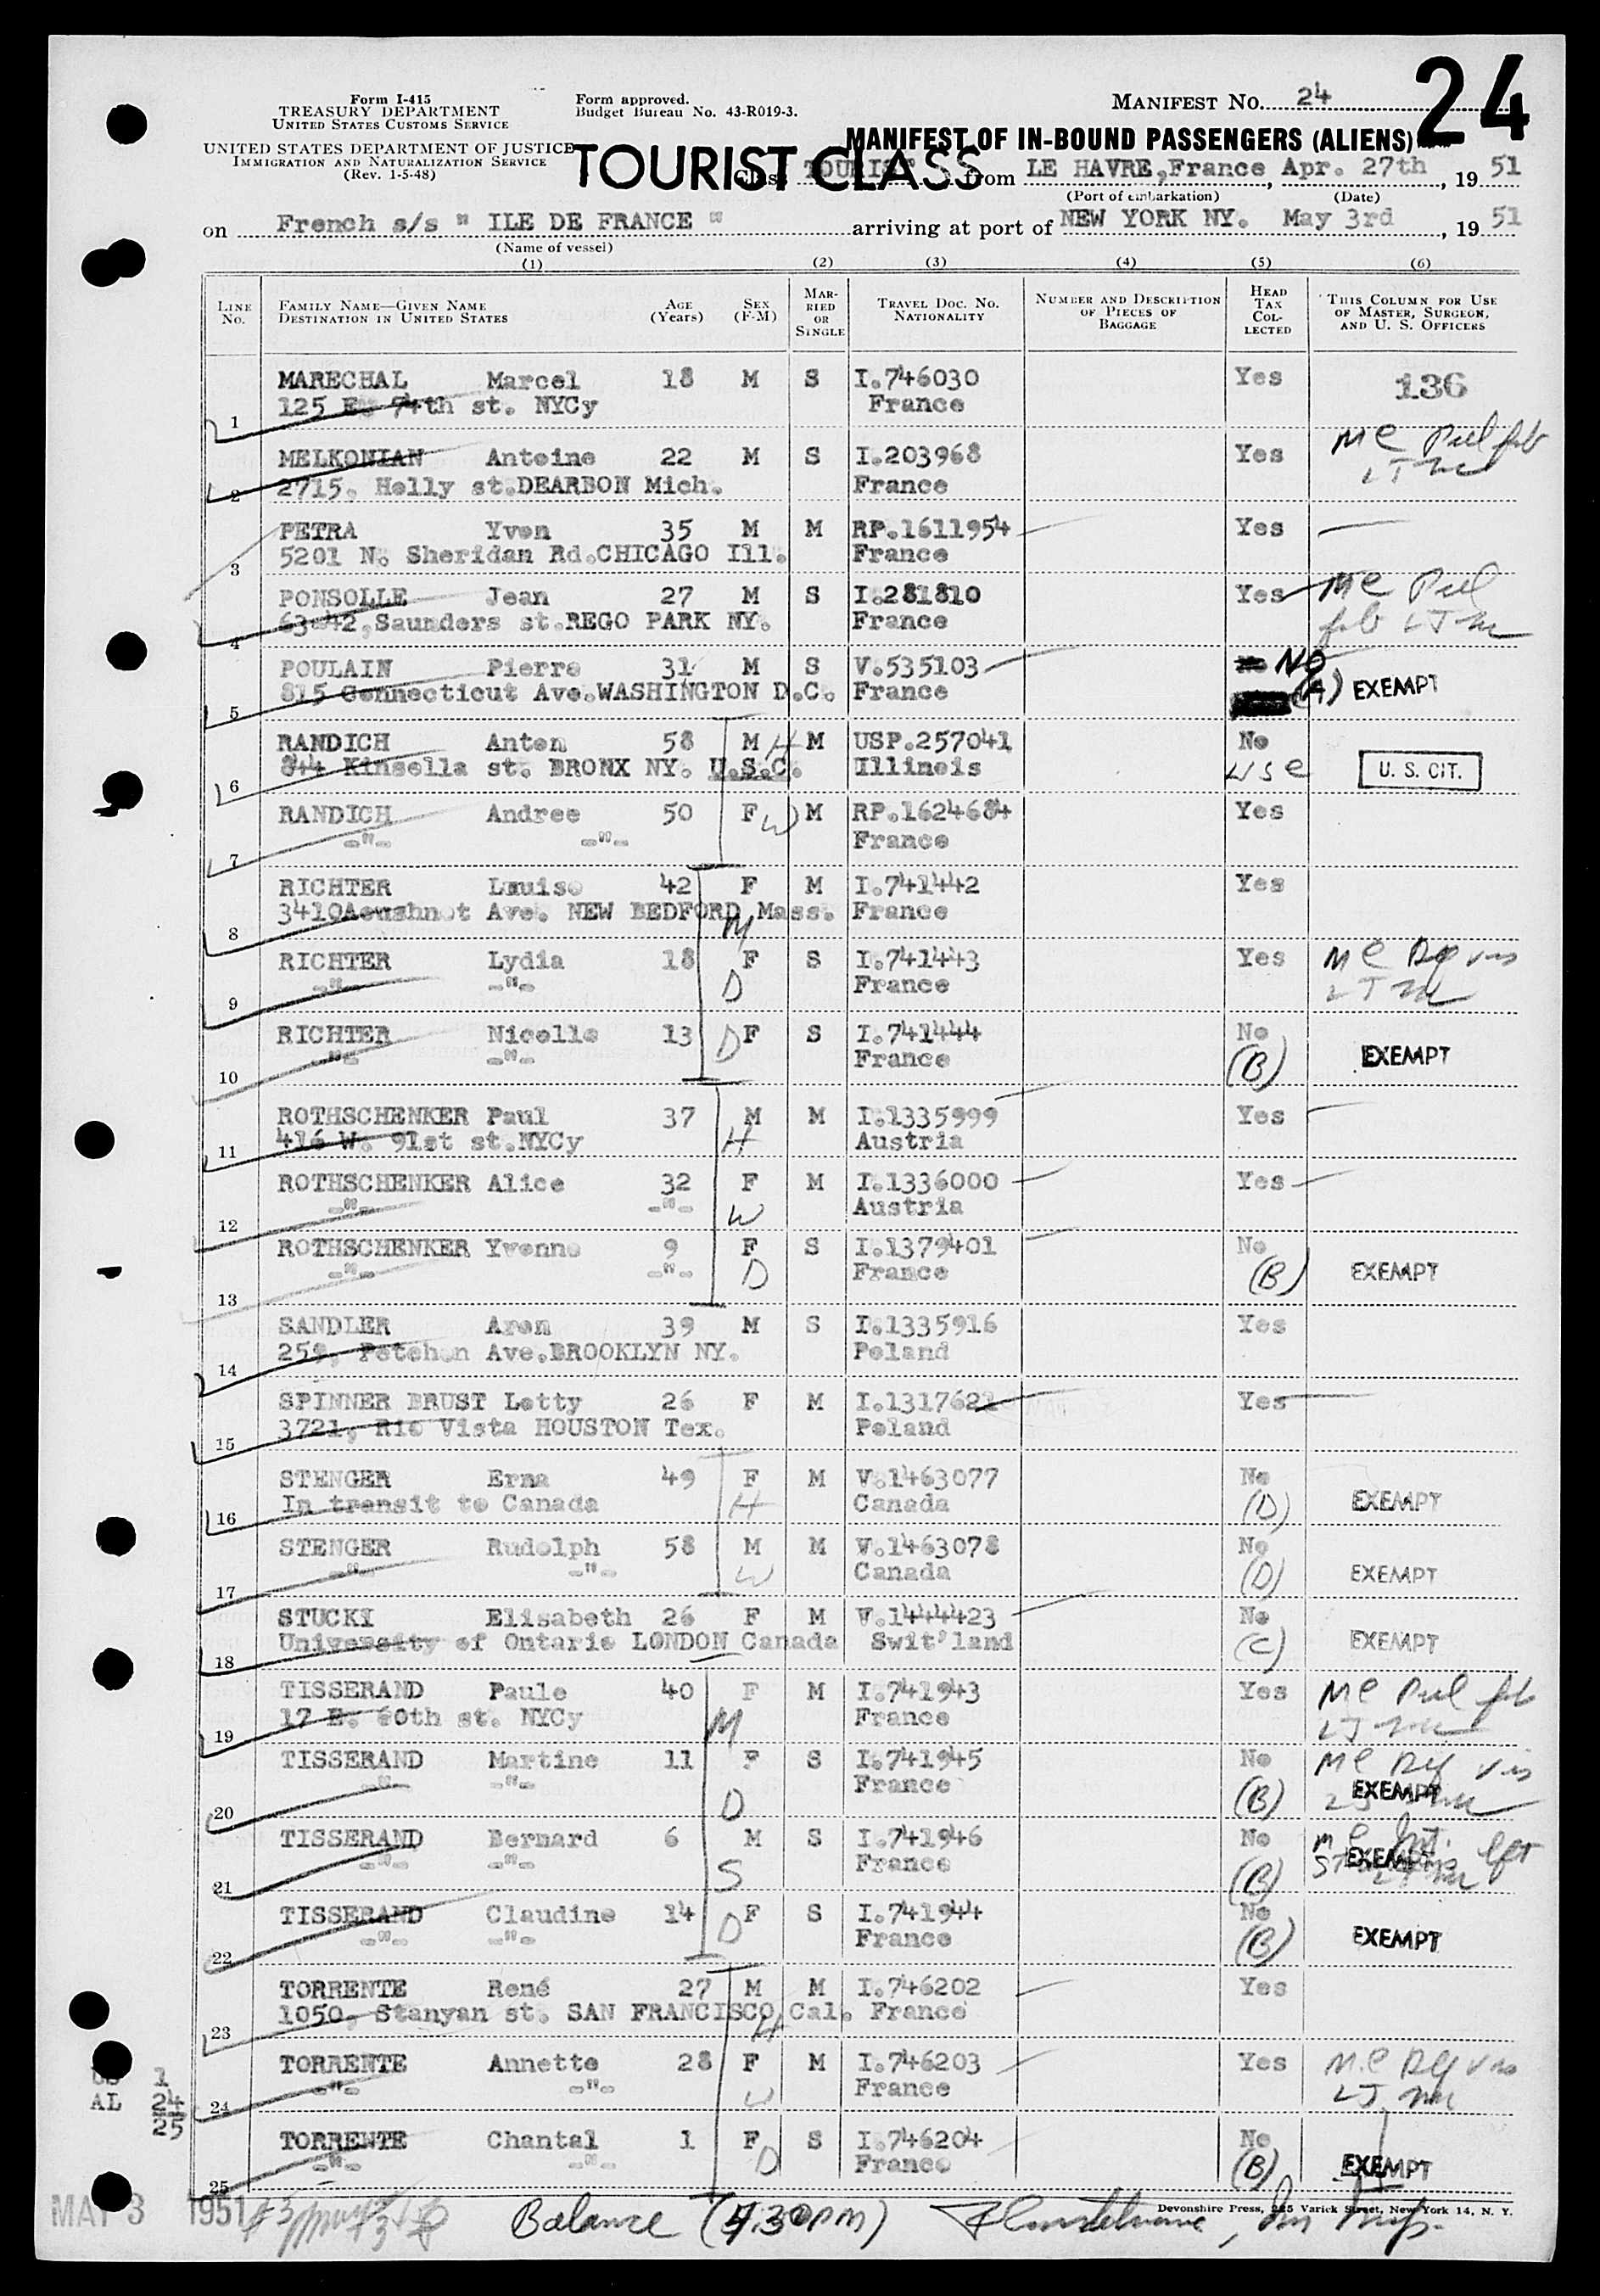 24
Form I-415
TREASURY DEPARTMENT
UNITED STATES CUSTOMS SERVICE
UNITED STATES DEPARTMENT OF JUSTICE
IMMIGRATION AND NATURALIZATION SERVICE
(Rev. 1-5-48)
Form approved.
Budget Bureau No. 43-R019-3.
MANIFEST NO. 24
MANIFEST OF IN-BOUND PASSENGERS (ALIENS)
TOURIST CLASS
Class TOURIST from LE HAVRE,France, Apr. 27th, 19 51
(Port of embarkation) (Date)
on French s/s " ILE DE FRANCE " arriving at port of NEW YORK NY. May 3rd, 19 51
(Name of vessel)
(1) (2) (3) (4) (5) (6)
LINE No. FAMILY NAME—GIVEN NAME DESTINATION IN UNITED STATES AGE (Years) SEX (F-M) MARRIED OR SINGLE TRAVEL DOC. NO. NATIONALITY NUMBER AND DESCRIPTION OF PIECES OF BAGGAGE HEAD TAX COLLECTED THIS COLUMN FOR USE OF MASTER, SURGEON, AND U. S. OFFICERS
MARECHAL Marcel 18 M S I.746030 Yes 136
1 125 E. 74th st. NYCy France
MELKONIAN Antoine 22 M S I.203968 Yes
2 2715. Holly st.DEARBON Mich. France
PETRA Yvon 35 M M RP.1611954 Yes
3 5201 N. Sheridan Rd.CHICAGO Ill. France
PONSOLLE Jean 27 M S I.281810 Yes
4 63-42,Saunders st.REGO PARK NY. France
POULAIN Pierre 31 M S V.535103 NO
5 815 Connecticut Ave.WASHINGTON D.C. France (A) EXEMPT
RANDICH Anton 58 M H M USP.257041 No
6 844 Kinsella st. BRONX NY. U.S.C. Illinois USC U. S. CIT.
RANDICH Andree 50 F W M RP.1624684 Yes
7 -"- -"- France
RICHTER Louise 42 F M I.741442 Yes
8 3410Acushnet Ave. NEW BEDFORD Mass. France
M
RICHTER Lydia 18 F S I.741443 Yes
9 -"- -"- D France
RICHTER Nicolle 13 D F S I.741444 No
10 -"- -"- France (B) EXEMPT
ROTHSCHENKER Paul 37 M M I.1335999 Yes
11 416 W. 91st st.NYCy H Austria
ROTHSCHENKER Alice 32 F M I.1336000 Yes
12 -"- -"- W Austria
ROTHSCHENKER Yvonne 9 F S I.1379401 No
13 -"- -"- D France (B) EXEMPT
SANDLER Aron 39 M S I.1335916 Yes
14 Ave.BROOKLYN NY. Poland
SPINNER BRUST Lotty 26 F M I.1317621 Yes
15 3721, Rio Vista HOUSTON Tex. Poland
STENGER Erna 49 F M V.1463077 No
16 In transit to Canada H Canada (D) EXEMPT
STENGER Rudolph 58 M M V.1463078 No
17 -"- -"- W Canada (D) EXEMPT
STUCKI Elisabeth 26 F M V.1444423 No
18 University of Ontario LONDON Canada Swit'land (C) EXEMPT
TISSERAND Paule 40 F M I.741943 Yes
19 17 E. 60th st. NYCy M France
TISSERAND Martine 11 F S I.741945 No
20 -"- -"- D France (B) EXEMPT
TISSERAND Bernard 6 M S I.741946 No
21 -"- -"- S France (B) EXEMPT
TISSERAND Claudine 14 D F S I.741944 No
22 -"- -"- France (B) EXEMPT
TORRENTE René 27 M M I.746202 Yes
23 1050, Stanyan st. SAN FRANCISCO,Cal. France
H
TORRENTE Annette 28 F M I.746203 Yes
24 -"- -"- W France
TORRENTE Chantal 1 F S I.746204 No
25 -"- -"- D France (B) EXEMPT
US 1
AL 24
25
MAY 3 1951
Balance (4.30PM)
Devonshire Press, 225 Varick Street, New York 14, N. Y.